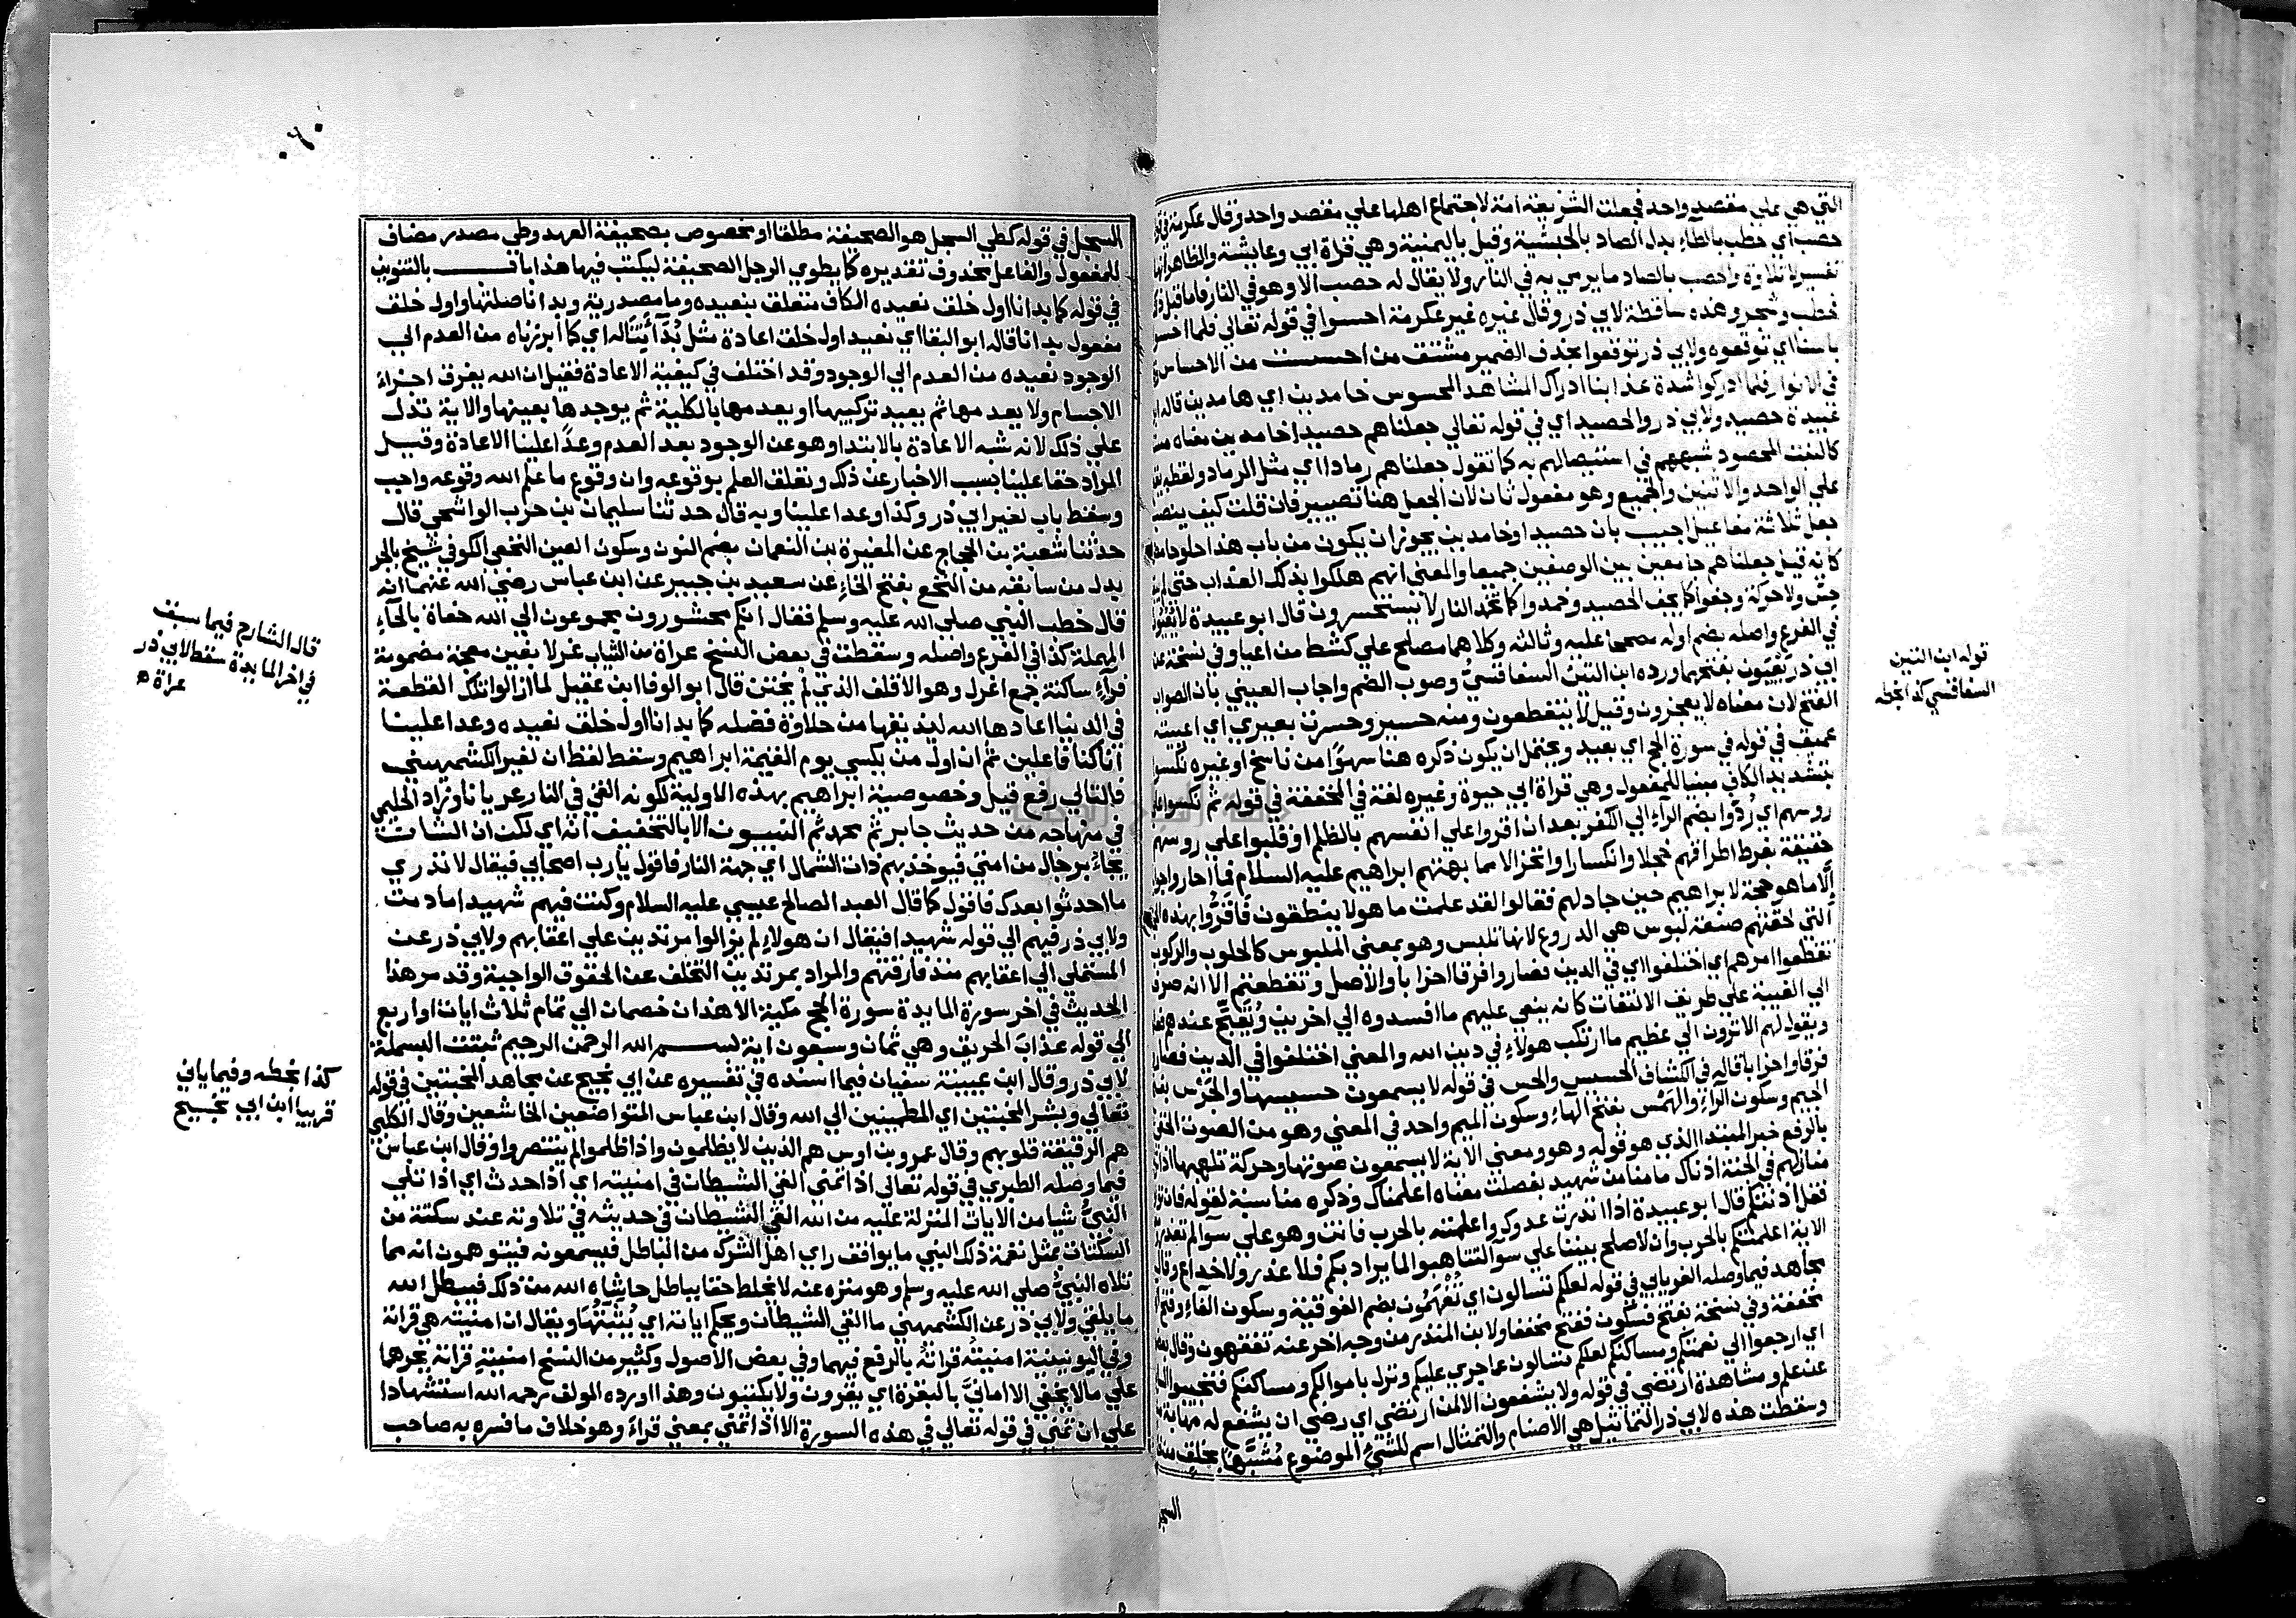 التي هي علي مقصد واحد فجعلت الشريعة امة لاجتماع اهلها علي مقصد واحد وقال عكرمة
حصب اي حطب بالطاء بدل الصاد بالحبشية وقيل باليمنية وهي قراة ابي وعايشة والظاهر انها
تفسير لا تلاوة والحصب بالصاد ما يرمي به في النار ولا يقال له حصب الا وهو في النار فاما قبل
فحطب وشجر وهذه ساقطة لابي ذر وقال غيره غير عكرمة احسوا في قوله تعالي فلما احسوا
باسنا اي توقعوه ولابي ذر توقعوا بحذف الضمير مشتق من احسست من الاحساس
في الانوار فلما ادركوا شدة عذابنا ادراك المشاهد المحسوس خامدين اي هامدين قاله
عبيدة حصيد ولابي ذر والحصيد اي في قوله تعالي جعلناهم حصيدا خامدين معناه
كالنبت المحصود شبههم في استيصالهم به كما تقول جعلناهم رمادا اي مثل الرماد ولفظه
علي الواحد والاثنين والجميع وهو مفعول ثان لان الجعل هنا تصيير فان قلت كيف ينصب
جعل ثلاثة مفاعيل اجيب بان حصيدا وخامدين يجوز ان يكون من باب هذا حلو حامض
كانه قيل جعلناهم جامعين بين الوصفين جميعا والمعني انهم هلكوا بذلك العذاب حتي لم
حس ولا حركة وجفوا كما يجف الحصيد وخمدوا كما تخمد النار لا يستحسرون قال ابو عبيدة لا يعيون
في الفرع واصله بضم اوله مصححا عليه وثالثه وكلاهما مصلح علي كشط من اعيا وفي نسخة عن
ابي ذر يعيون بفتحهما ورده ابن التين السفاقسي وصوب الضم واجاب العيني بان الصواب
الفتح لان معناه لا يعجزون وقيل لا ينقطعون ومنه حسير وحسرت بعيري اي اعييته
عميق في قوله في سورة الحج اي بعيد ويحتمل ان يكون ذكره هنا سهوا من ناسخ او غيره نكسوا
بتشديد الكاف مبنيا للمفعول وهي قراة ابي حيوة وغيره لغة في المخففة في قوله ثم نكسوا علي
روسهم اي ردوا بضم الراء الي الكفر بعد ان اقروا علي انفسهم بالظلم او قلبوا علي روسهم
حقيقة بفرط اطراقهم خجلا وانكسارا وانخزالا مما بهتهم ابراهيم عليه السلام فما احاروا جوابا
الا ما هو حجة لابراهيم حين جادلهم فقالوا لقد علمت ما هولاء ينطقون فاقروا بهذه
التي لحقتهم صنعة لبوس هي الدروع لانها تلبس وهو بمعني الملبوس كالحلوب والركوب
تقطعوا امرهم اي اختلفوا اي في الدين فصاروا فرقا احزابا والاصل وتقطعتم الا انه صرف
الي الغيبة علي طريق الالتفات كانه ينعي عليهم ما افسدوه الي اخرين ويقبح عندهم
ويقول لهم الا ترون الي عظيم ما ارتكب هولاء في دين الله والمعني اختلفوا في الدين فصاروا
فرقا واحزابا قاله في الكشاف الحسيس والحس في قوله لا يسمعون حسيسها والجرس بفتح
الجيم وسكون الراء والهمس بفتح الهاء وسكون الميم واحد في المعني وهو من الصوت الخفي
بالرفع خبر المبتدا الذي هو قوله وهو ومعني الاية لا يسمعون صوتها وحركة تلهبها اذا
منازلهم في الجنة اذناك ما منا من شهيد بفصلت معناه اعلمناك وذكره مناسبة لقوله فان
فقل اذنتكم قال ابو عبيدة اذا انذرت عدوك واعلمته بالحرب فانت وهو علي سوا لم تغدر
الاية اعلمتكم بالحرب وان لا صلح بيننا علي سوا لتتاهبوا لما يراد بكم فلا غدر ولا خداع وقال
مجاهد فيما وصله الفريابي في قوله لعلكم تسالون اي تفهمون بضم الفوقية وسكون الفاء وفتح
مخففة وفي نسخة بفتح فسكون ففتح مخففا ولابن المنذر من وجه اخر عنه تفقهون وقال
اي ارجعوا الي نعمتكم ومساكنكم لعلكم تسالون عما جري عليكم ونزل باموالكم ومساكنكم فتجيبوا
عن علم ومشاهدة ارتضي في قوله ولا يشفعون الا لمن ارتضي اي رضي ان يشفع له مهابة
وسقطت هذه لابي ذر التماثيل هي الاصنام والتمثال اسم للشيء الموضوع مشبها بخلق
السجل
قوله ابن التين
السفاقسي كذا بخطه
السجل في قوله كطي السجل هو الصحيفة مطلقا او مخصوص بصحيفة العهد وطي مصدر مضاف
للمفعول والفاعل محذوف تقديره كما يطوي الرجل الصحيفة ليكتب فيها هذا باب بالتنوين
في قوله كما بدانا اول خلق نعيده الكاف متعلق بنعيده وما مصدرية وبدانا صلتها واول خلق
مفعول بدانا قاله ابو البقا اي نعيد اول خلق اعادة مثل بدأتنا له اي كما ابرزناه من العدم الي
الوجود نعيده من العدم الي الوجود وقد اختلف في كيفية الاعادة فقيل ان الله يفرق اجزاء
الاجسام ولا يعدمها ثم يعيد تركيبها او يعدمها بالكلية ثم يوجدها بعينها والاية تدل
علي ذلك لانه شبه الاعادة بالابتدا وهو عن الوجود بعد العدم وعدا علينا الاعادة وقيل
المراد حقا علينا بسبب الاخبار عن ذلك وتعلق العلم بوقوعه وان وقوع ما علم الله وقوعه واجب
وسقط باب لغير ابي ذر وكذا وعدا علينا وبه قال حدثنا سليمان بن حرب الواشحي قال
حدثنا شعبة بن الحجاج عن المغيرة بن النعمان بضم النون وسكون العين النخعي الكوفي شيخ بالجر
بدل من سابقه من النخع بفتح الخاء عن سعيد بن جبير عن ابن عباس رضي الله عنهما انه
قال خطب النبي صلي الله عليه وسلم فقال انكم محشورون مجموعون الي الله حفاة بالحاء
المهملة كذا في الفرع واصله وسقطت في بعض النسخ عراة من الثياب غرلا بغين معجمة مضمومة
فراء ساكنة جمع اغرل وهو الاقلف الذي لم يختتن قال ابو الوفا ابن عقيل لما ازالوا تلك القطعة
في الدنيا اعادها الله ليذيقها من حلاوة فضله كما بدانا اول خلق نعيده وعدا علينا
انا كنا فاعلين ثم ان اول من يكسي يوم القيمة ابراهيم وسقط لفظ ان لغير الكشميهني
فالتالي رفع قيل وخصوصية ابراهيم بهذه الاولية لكونه القي في النار عريانا وزاد الحليمي
في منهاجه من حديث جابر ثم محمد ثم النبيون الا بالتخفيف انه اي لكن ان الشان
يجاء برجال من امتي فيوخذ بهم ذات الشمال اي جهة النار فاقول يارب اصحابي فيقال لا تدري
ما احدثوا بعدك فاقول كما قال العبد الصالح عيسي عليه السلام وكنت فيهم شهيدا ما دمت
ولابي ذر فيهم الي قوله شهيدا فيقال ان هولاء لم يزالوا مرتدين علي اعقابهم ولابي ذر عن
المستملي الي اعقابهم منذ فارقتهم والمراد بمرتدين التخلف عن الحقوق الواجبة وقد مر هذا
الحديث في اخر سورة المايدة سورة الحج مكية الا هذان خصمان الي تمام ثلاث ايات او اربع
الي قوله عذاب الحريق وهي ثمان وسبعون اية بسم الله الرحمن الرحيم ثبتت البسملة
لابي ذر وقال ابن عيينة سفيان فيما اسنده في تفسيره عن ابي نجيح عن مجاهد المخبتين في قوله
تعالي وبشر المخبتين اي المطمينين الي الله وقال ابن عباس المتواضعين الخاشعين وقال الكلبي
هم الرقيقة قلوبهم وقال عمرو بن اوس هم الذين لا يظلمون واذا ظلموا لم ينتصروا وقال ابن عباس
فيما وصله الطبري في قوله تعالي اذا تمني القي الشيطان في امنيته اي اذا حدث اي اذا تلي
النبي شيا من الايات المنزلة عليه من الله القي الشيطان في حديثه في تلاوته عند سكتة من
السكتات بمثل نغمة ذلك النبي ما يوافق راي اهل الشرك من الباطل فيسمعونه فيتوهمون انه مما
تلاه النبي صلي الله عليه وسلم وهو منزه عنه لا يخلط حقا بباطل حاشاه الله من ذلك فيبطل الله
ما يلقي ولابي ذر عن الكشميهني ما القي الشيطان ويحكم اياته اي يثبتها ويقال ان امنيته هي قراته
وفي اليونينية امنيته قراته بالرفع فيهما وفي بعض الاصول وكثير من النسخ امنيته قراته بجرهما
علي ما لا يخفي الا اماني بالبقرة اي يقرون ولا يكتبون وهذا اورده المولف رحمه الله استشهادا
علي ان تمني في قوله تعالي في هذه السورة الا اذا تمني بمعني قراء وهو خلاف ما فسره به صاحب
قال الشارح فيما سبق
في اخر المايدة سقط لابي ذر
عراة ه
كذا بخطه وفيما ياتي
قريبا ابن ابي نجيح